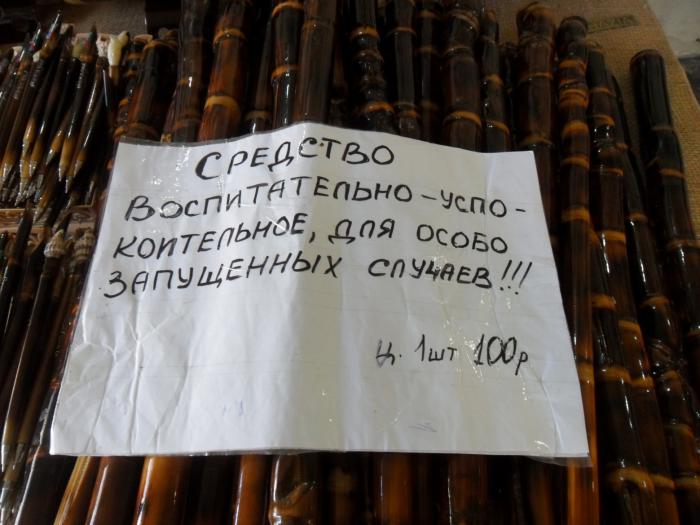 СРЕДСТВО
ВОСПИТАТЕЛЬНО-УСПО-
КОИТЕЛЬНОЕ, ДЛЯ ОСОБО
ЗАПУЩЕННЫХ СЛУЧАЕВ!!!
Ц. 1шт 100р